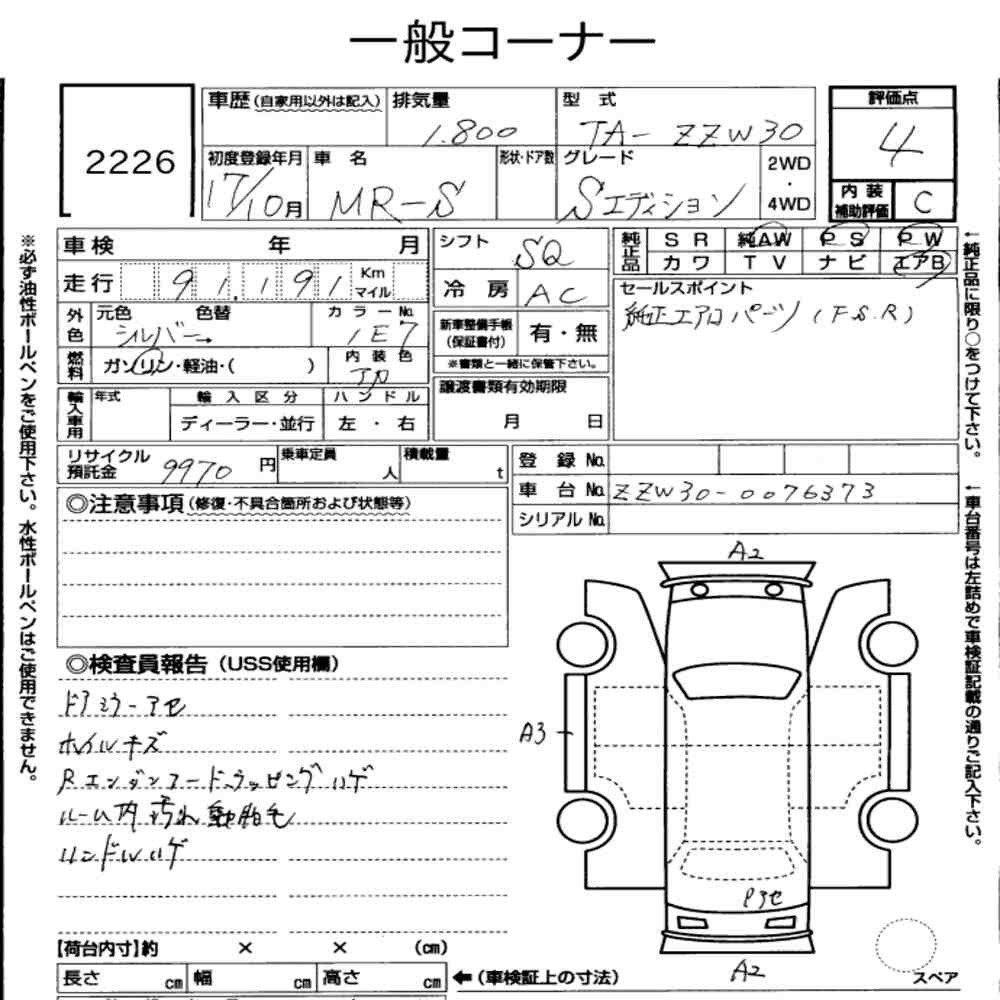 一般コーナー
2226
車歴 (自家用以外は記入) 排気量 型 式 評価点
1.800 TA- ZZW30 4
初度登録年月 車 名 形状・ドア数 グレード 2WD・4WD
17/10月 MR-S Sエディション
内装補助評価 C
車検 年 月 シフト SQ
純正品 SR 純AW PS PW
カワ TV ナビ エアB
走行 91,191 Km マイル 冷房 AC
セールスポイント
純正エアロパーツ (F.S.R)
外色 元色 色替 カラーNo.
シルバー→ 1E7
新車整備手帳(保証書付) 有・無
※書類と一緒に保管下さい。
燃料 ガソリン・軽油・( ) 内装色
譲渡書類有効期限
月 日
輸入車用 年式 輸入区分 ハンドル
ディーラー・並行 左・右
リサイクル預託金 9970 円 乗車定員 人 積載量 t
登録No.
車台No. ZZW30-0076373
シリアルNo.
◎注意事項 (修復・不具合箇所および状態等)
◎検査員報告 (USS使用欄)
ドアミラーアセ
ホイルキズ
Rエンブレムフードモラッピングハゲ
ルーム内 汚れ 動物毛
ハンドルハゲ
A2
A3
Pアセ
A2
スペア
【荷台内寸】約 × × (cm)
長さ cm 幅 cm 高さ cm ←(車検証上の寸法)
※必ず油性ボールペンをご使用下さい。水性ボールペンはご使用できません。
←純正品に限り○をつけて下さい。
←車台番号は左詰めで車検証記載の通りご記入下さい。